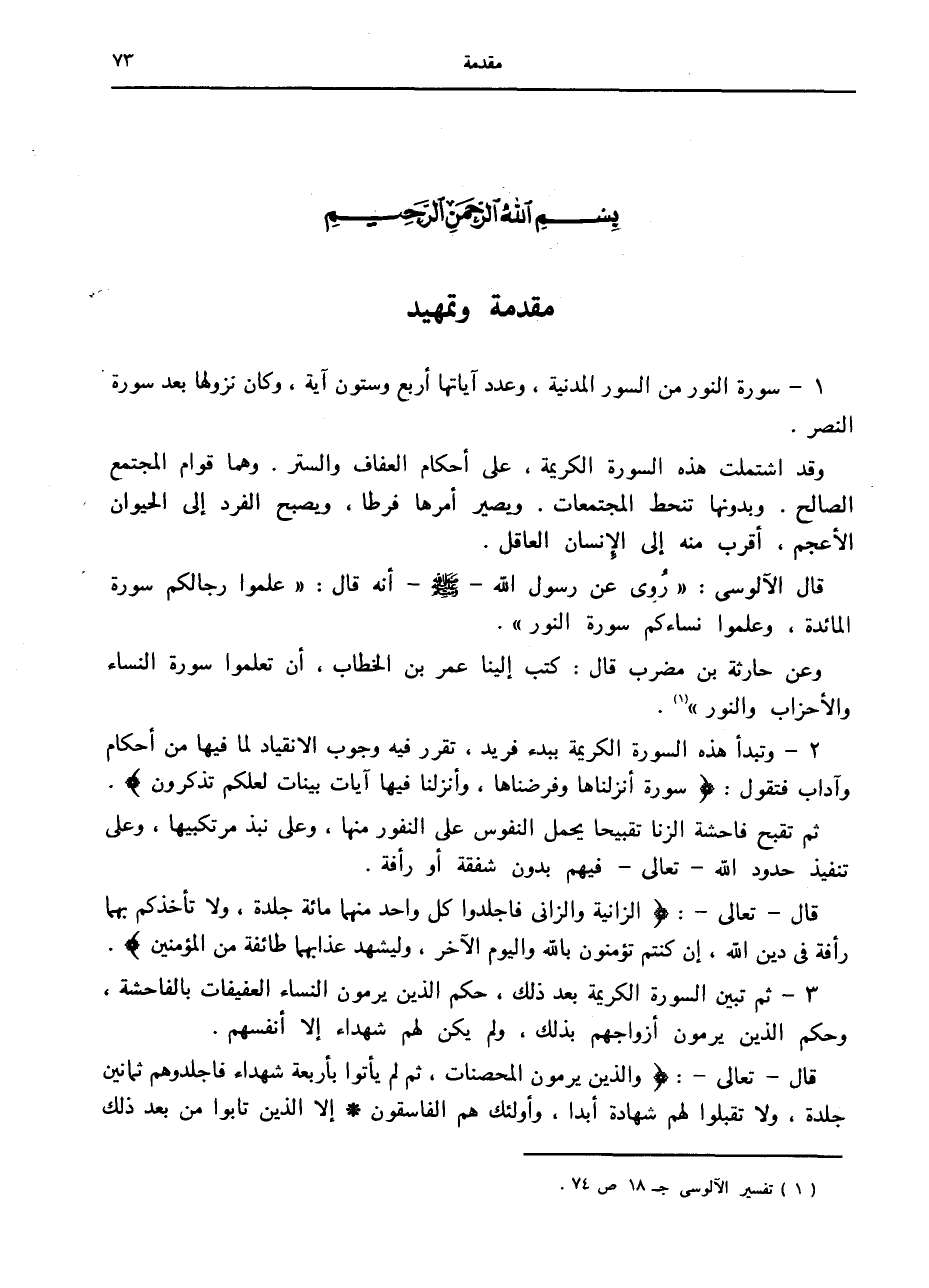 مقدمة ٧٣
بِسْمِ ٱللَّهِ ٱلرَّحْمَٰنِ ٱلرَّحِيمِ
مقدمة وتمهيد
١ – سورة النور من السور المدنية ، وعدد آياتها أربع وستون آية ، وكان نزولها بعد سورة
النصر .
وقد اشتملت هذه السورة الكريمة ، على أحكام العفاف والستر . وهما قوام المجتمع
الصالح . وبدونها تنحط المجتمعات . ويصير أمرها فرطا ، ويصبح الفرد إلى الحيوان
الأعجم ، أقرب منه إلى الإنسان العاقل .
قال الآلوسى : « رُوِى عن رسول الله – ﷺ – أنه قال : « علموا رجالكم سورة
المائدة ، وعلموا نساءكم سورة النور » .
وعن حارثة بن مضرب قال : كتب إلينا عمر بن الخطاب ، أن تعلموا سورة النساء
والأحزاب والنور »(١) .
٢ – وتبدأ هذه السورة الكريمة ببدء فريد ، تقرر فيه وجوب الانقياد لما فيها من أحكام
وآداب فتقول : ﴿ سورة أنزلناها وفرضناها ، وأنزلنا فيها آيات بينات لعلكم تذكرون ﴾ .
ثم تقبح فاحشة الزنا تقبيحا يحمل النفوس على النفور منها ، وعلى نبذ مرتكبيها ، وعلى
تنفيذ حدود الله – تعالى – فيهم بدون شفقة أو رأفة .
قال – تعالى – : ﴿ الزانية والزانى فاجلدوا كل واحد منهما مائة جلدة ، ولا تأخذكم بهما
رأفة فى دين الله ، إن كنتم تؤمنون بالله واليوم الآخر ، وليشهد عذابهما طائفة من المؤمنين ﴾ .
٣ – ثم تبين السورة الكريمة بعد ذلك ، حكم الذين يرمون النساء العفيفات بالفاحشة ،
وحكم الذين يرمون أزواجهم بذلك ، ولم يكن لهم شهداء إلا أنفسهم .
قال – تعالى – : ﴿ والذين يرمون المحصنات ، ثم لم يأتوا بأربعة شهداء فاجلدوهم ثمانين
جلدة ، ولا تقبلوا لهم شهادة أبدا ، وأولئك هم الفاسقون * إلا الذين تابوا من بعد ذلك
( ١ ) تفسير الآلوسى جـ ١٨ ص ٧٤ .